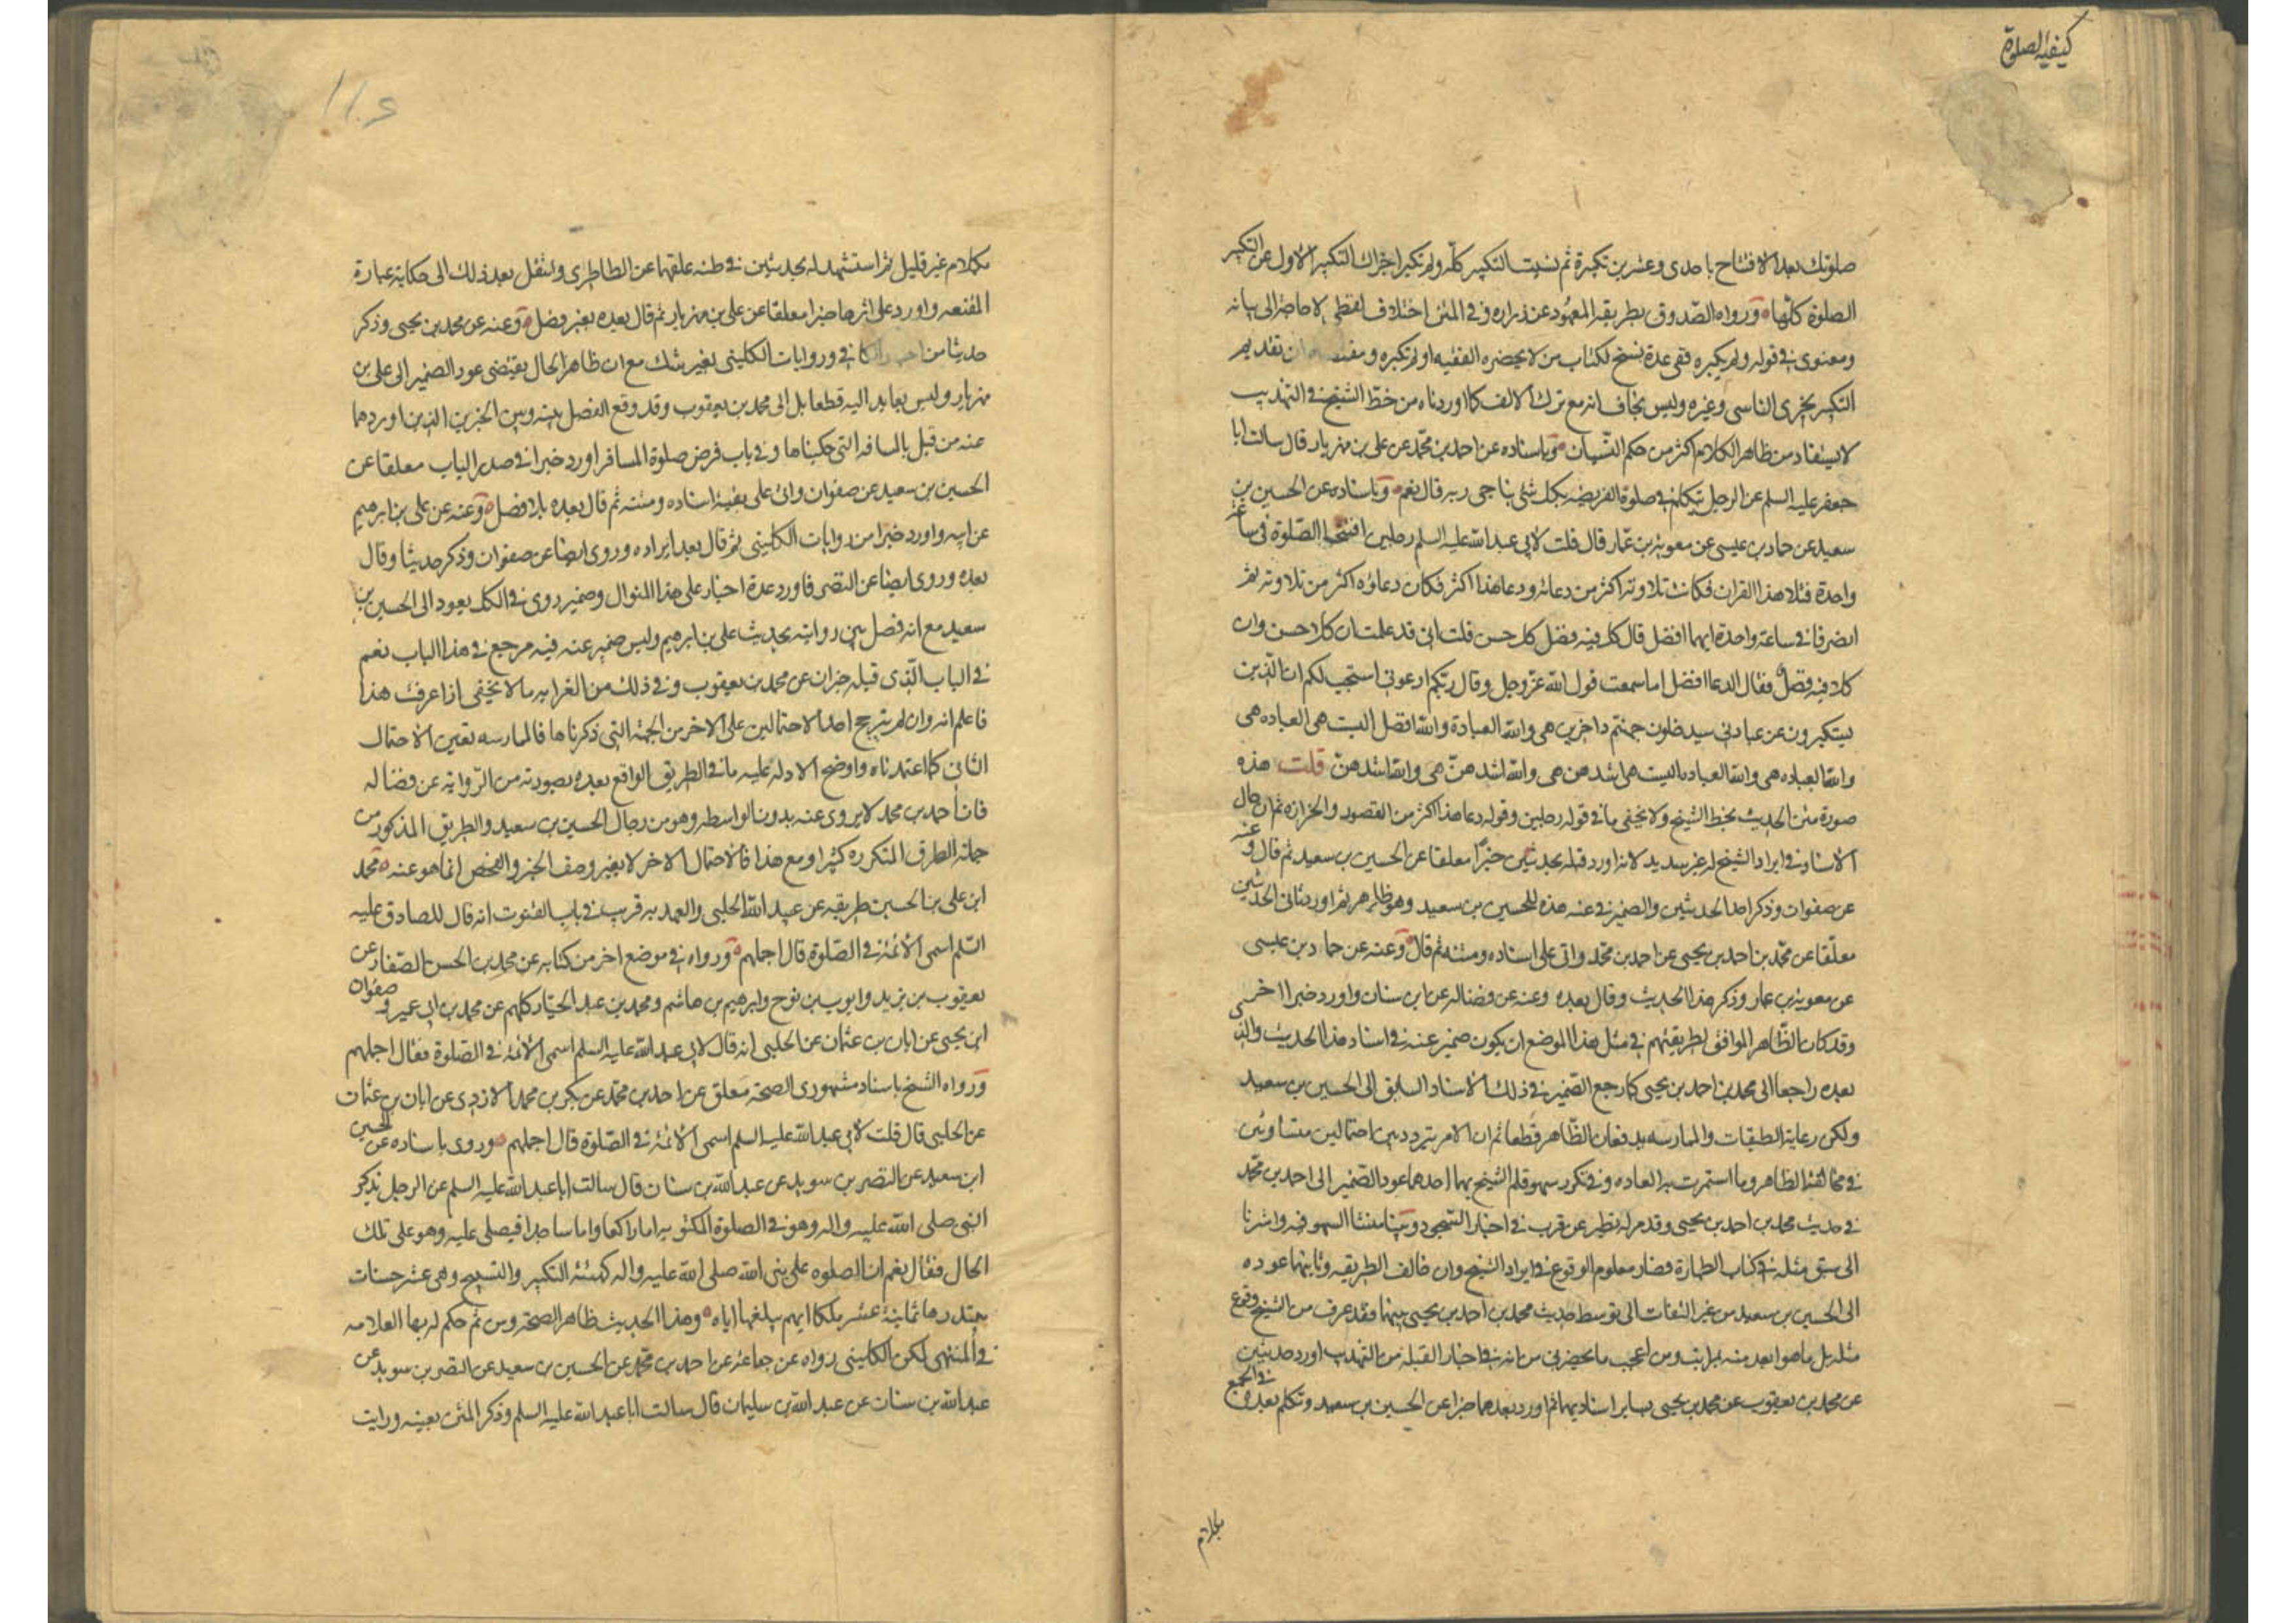 كيفية الصلوة
صلوتك بعد الافتتاح باحدى وعشرين تكبيرة ثم نسيت التكبير كله ولم تكبر اجزاك التكبير الاول عن التكبير
الصلوة كلها ورواه الصدوق بطريقه المعهود عن زراره وفي المتن اختلاف لفظي لا حاجة الى بيانه
ومعنوى في قوله ولم يكبره ففى عدة نسخ لكتاب من لا يحضره الفقيه او لم تكبره ان تقديم
التكبير يجزى الناسى وغيره وليس بخاف انه مع ترك الالف كما اوردناه من خط الشيخ في التهذيب
لا يستفاد من ظاهر الكلام اكثر من حكم النسيان وباسناده عن احمد بن محمد عن على بن مهزيار قال سالت ابا
جعفر عليه السلم عن الرجل يتكلم في صلوة الفريضه بكل شئ يناجى ربه قال نعم وباسناده عن الحسين بن
سعيد عن حماد بن عيسى عن معوية بن عمار قال قلت لابى عبد الله عليه السلم رجلين افتتحا الصلوة في ساعة
واحدة فتلا هذا القران فكانت تلاوته اكثر من دعائه ودعا هذا اكثر فكان دعاؤه اكثر من تلاوته ثم
انصرفا في ساعة واحدة ايهما افضل قال كل فيه فضل كل حسن قلت انى قد علمت ان كلا حسن وان
كلا فيه فضل فقال الدعا افضل اما سمعت قول الله عز وجل وقال ربكم ادعونى استجب لكم ان الذين
يستكبرون عن عبادتى سيدخلون جهنم داخرين هى والله العبادة والله افضل اليست هى العباده هى
والله العباده هى والله العباده اليست هى اشدهن هى والله اشدهن هى والله اشدهن قلت هذه
صورة متن الحديث بخط الشيخ ولا يخفى ما في قوله رجلين وقوله دعا هذا اكثر من القصور والحزازه ثم ان حال
الاسناد في ايراد الشيخ له غير سديد لانه اورد قبله بحديثين خبرا معلقا عن الحسين بن سعيد ثم قال وعنه
عن صفوان وذكر احد الحديثين والضمير في عنه هذه للحسين بن سعيد وهو ظاهر ثم اورد ثانى الحديثين
معلقا عن محمد بن احمد بن يحيى عن احمد بن محمد واتى على اسناده ومتنه ثم قال وعنه عن حماد بن عيسى
عن معوية بن عمار وذكر هذا الحديث وقال بعده وعنه عن فضاله عن ابن سنان واورد خبرا اخر
وقد كان الظاهر الموافق لطريقتهم في مثل هذا الموضع ان يكون ضمير عنه في اسناد هذا الحديث والذى
بعده راجعا الى محمد بن احمد بن يحيى كما رجع الضمير في ذلك الاسناد السابق الى الحسين بن سعيد
ولكن رعاية الطبقات والممارسه يدفعان الظاهر قطعا ثم ان الامر يتردد بين احتمالين متساويين
في مخالفة الظاهر وما استمرت به العاده وفي تكرر سهو قلم الشيخ بهما احدهما عود الضمير الى احمد بن محمد
في حديث محمد بن احمد بن يحيى وقد مر له نظير عن قرب في اخبار السجود وبينا منشا السهو فيه واشرنا
الى سبق مثله في كتاب الطهارة فصار معلوم الوقوع في ايراد الشيخ وان خالف الطريقه وثانيهما عوده
الى الحسين بن سعيد من غير التفات الى توسط حديث محمد بن احمد بن يحيى بينهما فقد عرف من الشيخ وقوع
مثله بل ما هو ابعد منه بمراتب ومن اعجب ما يحضرنى من انه في اخبار القبلة من التهذيب اورد حديثين
عن محمد بن يعقوب عن محمد بن يحيى بساير اسناديهما ثم اورد بعدهما خبرا عن الحسين بن سعيد وتكلم بعده في الجمع
بكلام
بكلام غير قليل ثم استشهد له بحديثين في طنه علقهما عن الطاطرى وانتقل بعد ذلك الى حكاية عبارة
المقنعه واورد على اثرها خبرا معلقا عن على بن مهزيار ثم قال بعده بغير فصل وعنه عن محمد بن يحيى وذكر
حديثا من في وروايات الكلينى بغير شك مع ان ظاهر الحال يقتضى عود الضمير الى على بن
مهزيار وليس بعايد اليه قطعا بل الى محمد بن يعقوب وقد وقع الفصل بينه وبين الخبرين الذين اوردهما
عنه من قبل بالمسافه التى حكيناها وفي باب فرض صلوة المسافر اورد خبرا في صدر الباب معلقا عن
الحسين بن سعيد عن صفوان واتى على بقية اسناده ومتنه ثم قال بعده بلا فصل وعنه عن على بن ابرهيم
عن ابيه واورد خبرا من روايات الكلينى ثم قال بعد ايراده وروى ايضا عن صفوان وذكر حديثا وقال
بعده وروى ايضا عن النضر فاورد عدة اخبار على هذا المنوال وضمير روى في الكل يعود الى الحسين بن
سعيد مع انه فصل بين رواياته بحديث على بن ابرهيم وليس ضمير عنه فيه مرجع في هذا الباب نعم
في الباب الذى قبله خبران عن محمد بن يعقوب وفي ذلك من الغرابه ما لا يخفى اذا عرفت هذا
فاعلم انه وان لم يترجح احد الاحتمالين على الاخر من الجهة التى ذكرناها فالممارسه تعين الاحتمال
الثانى كما اعتمدناه واوضح الادلة عليه ما في الطريق الواقع بعده بصورته من الرواية عن فضاله
فان احمد بن محمد لا يروى عنه بدون الواسطه وهو من رجال الحسين بن سعيد والطريق المذكور من
جملة الطرق المتكرره كثيرا ومع هذا فالاحتمال الاخر لا يغير وصف الخبر والفحص انما هو عنه محمد
ابن على بن الحسين بطريقه عن عبيد الله الحلبى والعهد به قريب في باب القنوت انه قال للصادق عليه
السلم اسمى الائمة في الصلوة قال اجملهم ورواه في موضع اخر من كتابه عن محمد بن الحسن الصفار عن
يعقوب بن يزيد وايوب بن نوح وابرهيم بن هاشم ومحمد بن عبد الجبار كلهم عن محمد بن ابى عمير وصفوان
ابن يحيى عن ابان بن عثمان عن الحلبى انه قال لابى عبد الله عليه السلم اسمى الائمة في الصلوة فقال اجملهم
ورواه الشيخ باسناد مشهورى الصحة معلق عن احمد بن محمد عن بكر بن محمد الازدى عن ابان بن عثمان
عن الحلبى قال قلت لابى عبد الله عليه السلم اسمى الائمة في الصلوة قال اجملهم وروى باسناده عن الحسين
ابن سعيد عن النضر بن سويد عن عبد الله بن سنان قال سالت ابا عبد الله عليه السلم عن الرجل يذكر
النبى صلى الله عليه واله وهو في الصلوة المكتوبه اما راكعا واما ساجدا فيصلى عليه وهو على تلك
الحال فقال نعم ان الصلوه على نبى الله صلى الله عليه واله كهيئة التكبير والتسبيح وهى عشر حسنات
يبتدرها ثمانية عشر ملكا ايهم يبلغها اياه وهذا الحديث ظاهر الصحة ومن ثم حكم له بها العلامه
في المنتهى لكن الكلينى رواه عن جماعة عن احمد بن محمد عن الحسين بن سعيد عن النضر بن سويد عن
عبد الله بن سنان عن عبد الله بن سليمان قال سالت ابا عبد الله عليه السلم وذكر المتن بعينه ورايت